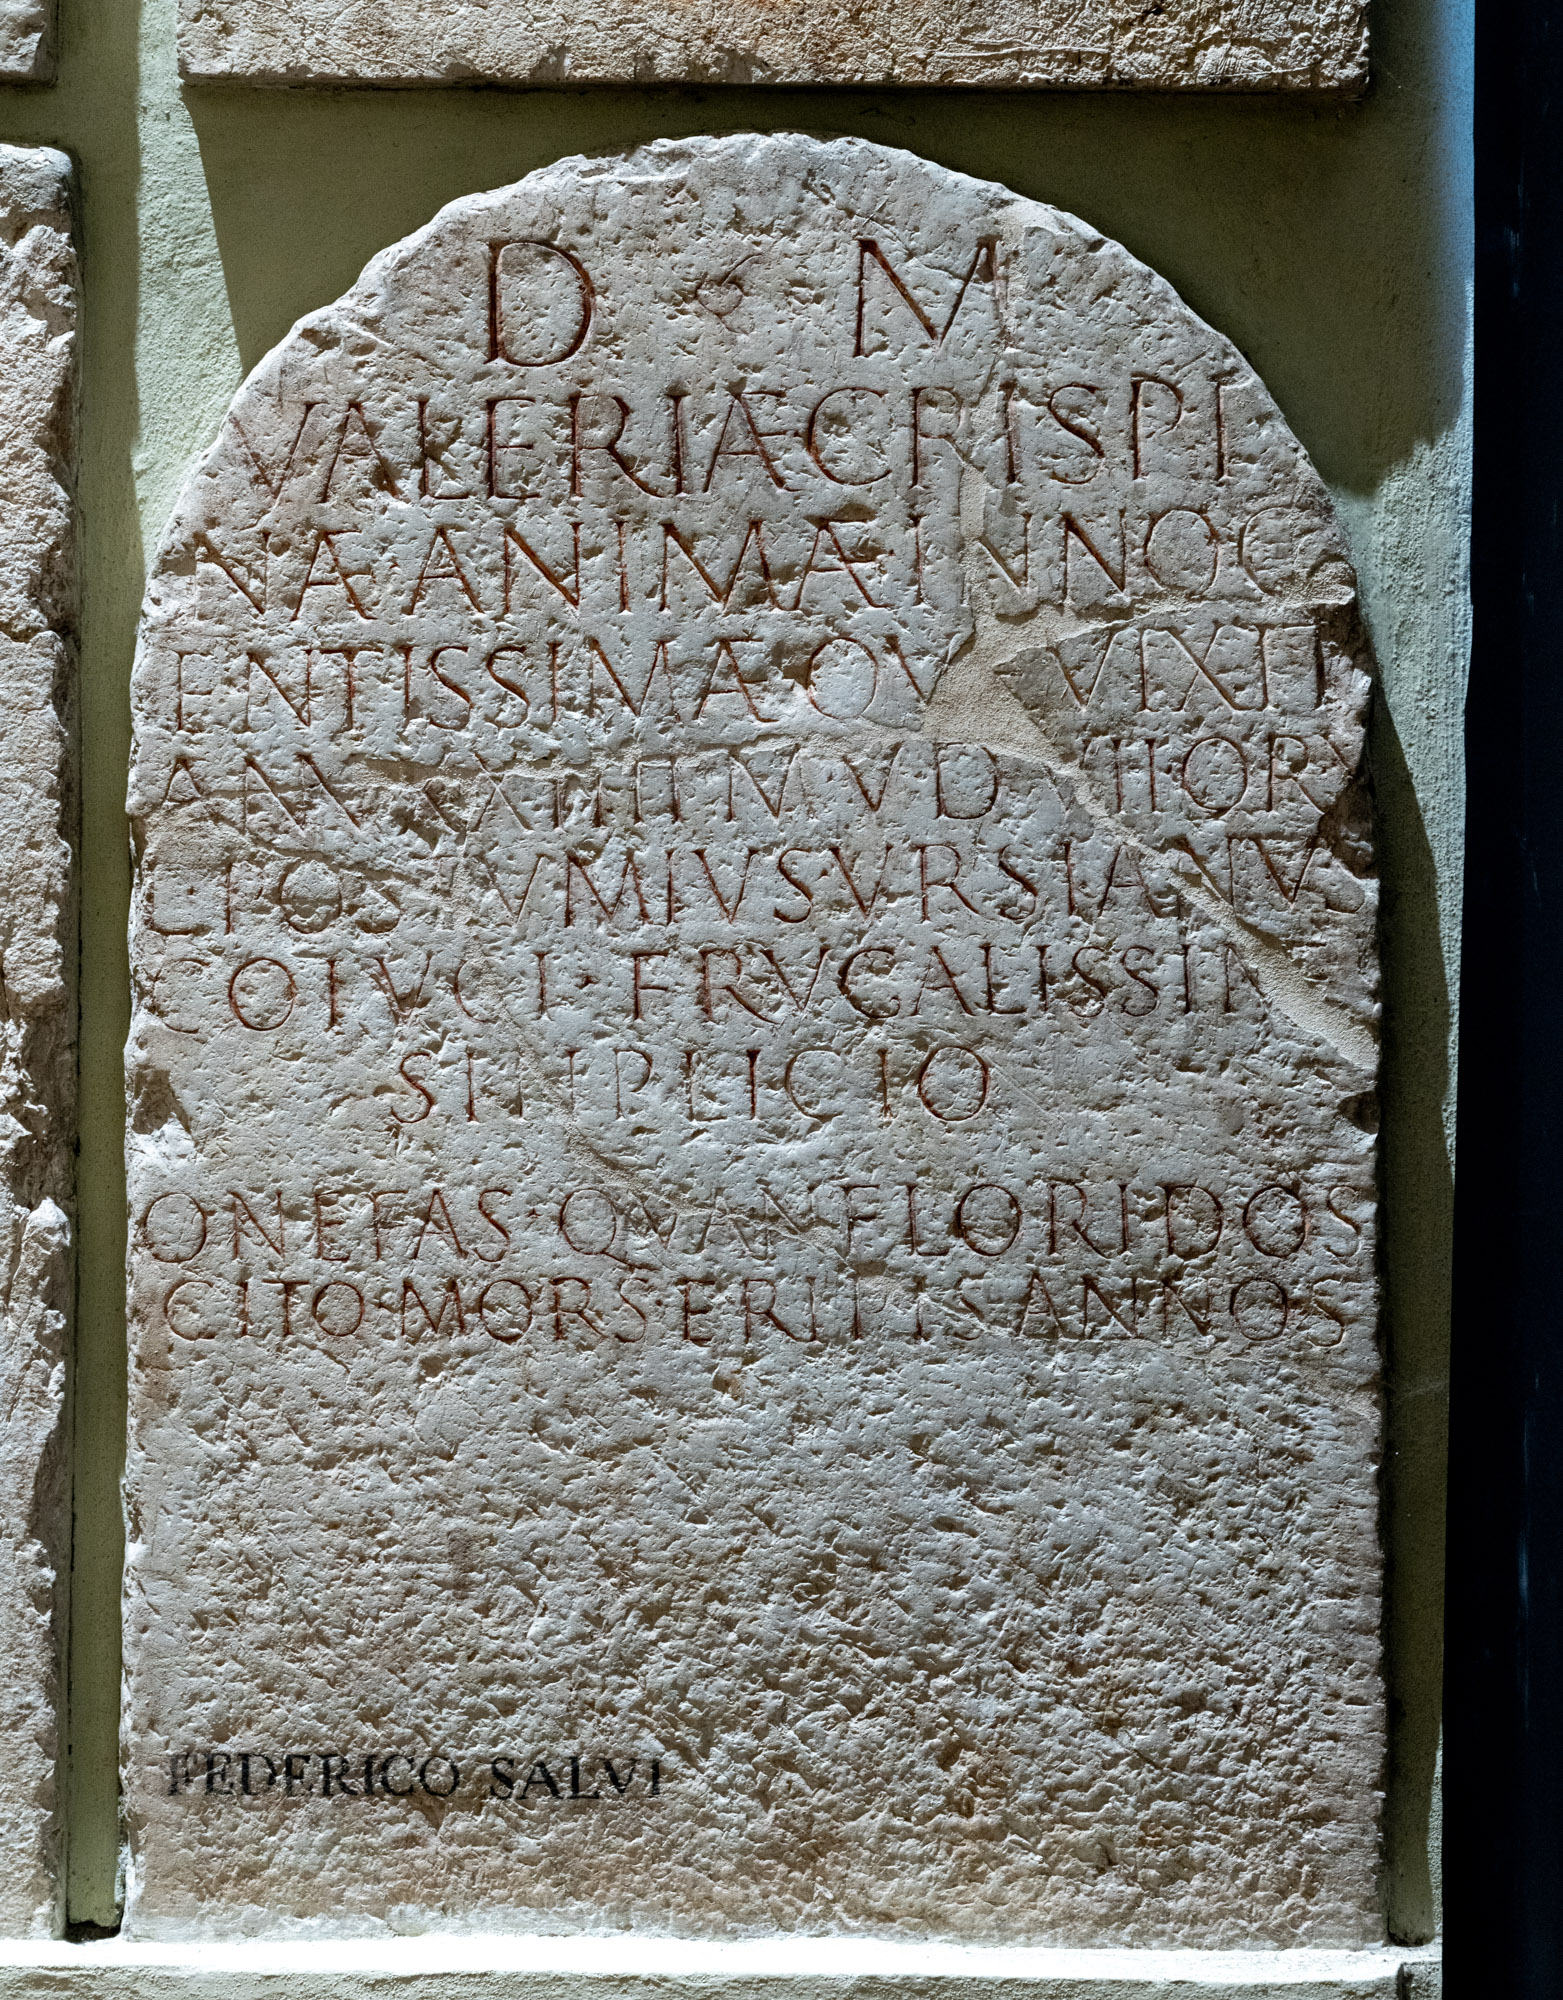 D M
VALERIAE CRISPI
NAE ANIMAE INNOC
ENTISSIMAE QV VIXIT
ANN XXIIII M V D VIII ORV
L POSTVMIVS VRSIANVS
COIVGI · FRVGALISSIM
SIMPLICIO
O NEFAS · QVAM FLORIDOS
CITO · MORS · ERIPIS ANNOS
FEDERICO SALVI